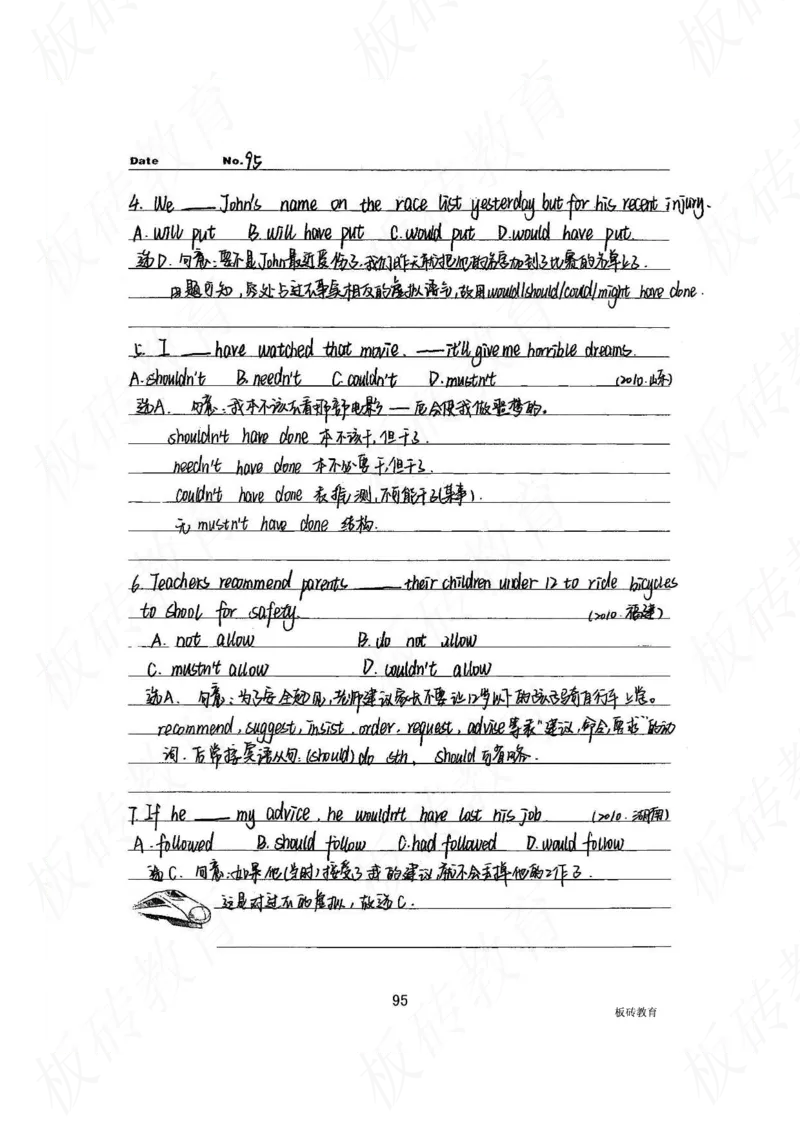 Date No. 95
4. We ___ John's name on the race list yesterday but for his recent injury.
A. will put B. will have put C. would put D. would have put.
选D. 句意:要不是John最近受伤了,我们昨天就把他的名字加到了比赛的名单上了.
由题可知,此处与过去事实相反的虚拟语气,故用would/should/could/might have done.
5. I ___ have watched that movie. —— it'll give me horrible dreams.
A. shouldn't B. needn't C. couldn't D. mustn't (2010.山东)
选A. 句意:我本不该去看那部电影——后会使我做噩梦的。
shouldn't have done 本不该干,但干了.
needn't have done 本不必要干,但干了.
couldn't have done 表推测,不可能干了(某事).
无 mustn't have done 结构.
6. Teachers recommend parents ___ their children under 12 to ride bicycles
to shool for safety. (2010.福建)
A. not allow B. do not allow
C. mustn't allow D. couldn't allow
选A. 句意:为了安全起见,老师建议家长不要让12岁以下的孩子骑自行车上学。
recommend, suggest, insist, order, request, advise等表"建议,命令,要求"的动
词.后常接宾语从句:(should) do sth, should可省略.
7. If he ___ my advice, he wouldn't have lost his job (2010.湖南)
A. followed B. should follow C. had followed D. would follow
选C. 句意:如果他(当时)接受了我的建议就不会丢掉他的工作了.
这是对过去的虚拟,故选C.
95
板砖教育
板砖教育